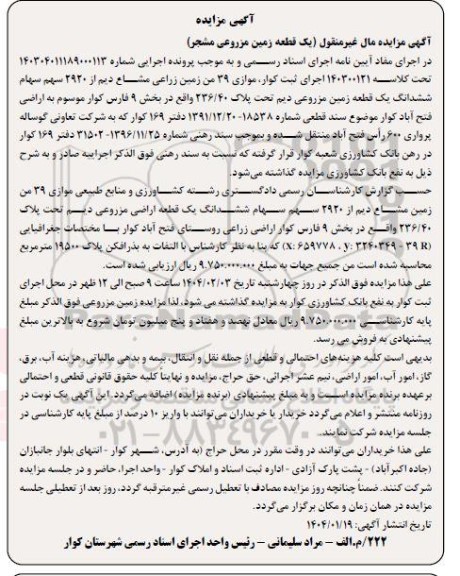 آگهی مزایده
آگهی مزایده مال غیرمنقول (یک قطعه زمین مزروعی مشجر)
در اجرای مفاد آیین نامه اجرای اسناد رسمی و به موجب پرونده اجرایی شماره ۱۴۰۳۰۴۰۱۱۱۸۹۰۰۰۱۱۳
تحت کلاسه ۱۴۰۳۰۰۱۲۱ اجرای ثبت کوار، موازی ۳۹ من زمین زراعی مشاع دیم از ۲۹۲۰ سهم سهام
ششدانگ یک قطعه زمین مزروعی دیم تحت پلاک ۲۳۶/۴۰ واقع در بخش ۹ فارس کوار موسوم به اراضی
فتح آباد کوار موضوع سند قطعی شماره ۱۸۵۳۸- ۱۳۹۱/۱۲/۲۰ دفتر ۱۶۹ کوار که به شرکت تعاونی گوساله
پرواری ۶۰۰ رأس فتح آباد منتقل شده و بموجب سند رهنی شماره ۱۳۹۶/۱۱/۲۵- ۳۱۵۰۲ دفتر ۱۶۹ کوار
در رهن بانک کشاورزی شعبه کوار قرار گرفته که نسبت به سند رهنی فوق الذکر اجراییه صادر و به شرح
ذیل به نفع بانک کشاورزی مزایده گذاشته می‌شود.
حسب گزارش کارشناسان رسمی دادگستری رشته کشاورزی و منابع طبیعی موازی ۳۹ من
زمین مشاع دیم از ۲۹۲۰ سهم سهام ششدانگ یک قطعه اراضی مزروعی دیم تحت پلاک
۲۳۶/۴۰ واقع در بخش ۹ فارس کوار اراضی زراعی روستای فتح آباد کوار با مختصات جغرافیایی
(X: ۶۵۹۷۷۸ , y: ۳۲۴۰۳۴۹ - ۳۹ R) که بنا به نظر کارشناس با التفات به بذرافکن پلاک ۱۹۵۰۰ مترمربع
محاسبه شده است من جمیع جهات به مبلغ ۹.۷۵۰.۰۰۰.۰۰۰ ریال ارزیابی شده است.
علی هذا مزایده فوق الذکر در روز چهارشنبه تاریخ ۱۴۰۴/۰۲/۰۳ ساعت ۹ صبح الی ۱۲ ظهر در محل اجرای
ثبت کوار به نفع بانک کشاورزی کوار به مزایده گذاشته می شود، لذا مزایده زمین مزروعی فوق الذکر مبلغ
پایه کارشناسی ۹.۷۵۰.۰۰۰.۰۰۰ ریال معادل نهصد و هفتاد و پنج میلیون تومان شروع به بالاترین مبلغ
پیشنهادی به فروش می رسد.
بدیهی است کلیه هزینه‌های احتمالی و قطعی از جمله نقل و انتقال، بیمه و بدهی مالیاتی، هزینه آب، برق،
گاز، امور آب، امور اراضی، نیم عشر اجرائی، حق حراج، مزایده و نهایتا کلیه حقوق قانونی قطعی و احتمالی
برعهده برنده مزایده است و به مبلغ پیشنهادی (برنده مزایده) اضافه می‌گردد. این آگهی یک نوبت در
روزنامه منتشر و اعلام می‌گردد خریدار یا خریداران می‌توانند با واریز ۱۰ درصد از مبلغ پایه کارشناسی در
جلسه مزایده شرکت نمایند.
علی هذا خریداران می توانند در وقت مقرر در محل حراج (به آدرس، شهر کوار - انتهای بلوار جانبازان
(جاده اکبرآباد) - پشت پارک آزادی - اداره ثبت اسناد و املاک کوار - واحد اجرا، حاضر و در جلسه مزایده
شرکت کنند. ضمناً چنانچه روز مزایده مصادف با تعطیل رسمی غیرمترقبه گردد، روز بعد از تعطیلی جلسه
مزایده در همان زمان و مکان برگزار می‌گردد.
تاریخ انتشار آگهی: ۱۴۰۴/۰۱/۱۹
۲۲۲/م.الف - مراد سلیمانی - رئیس واحد اجرای اسناد رسمی شهرستان کوار